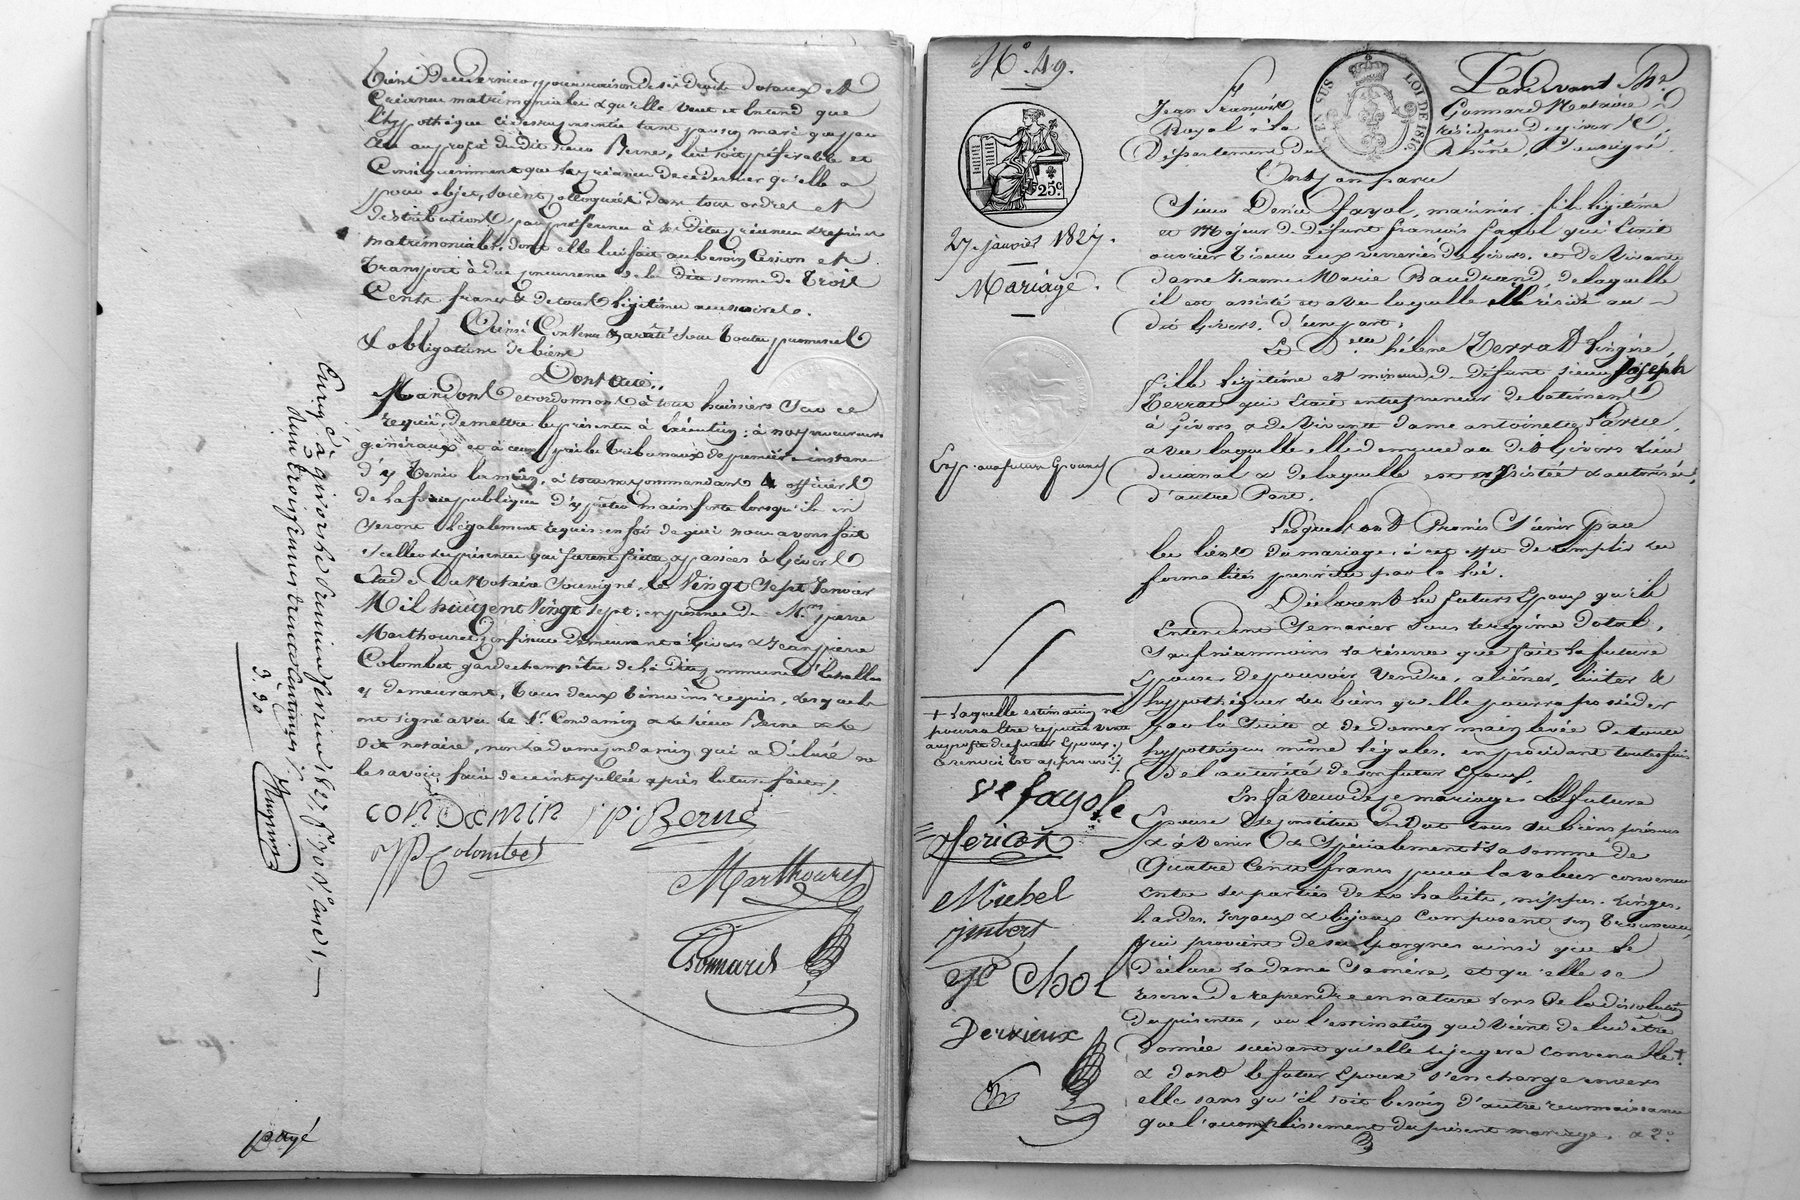 biens de ce dernier, pour raison de ses Droits Dotaux et
Créances matrimoniales & qu'elle veut et Entend que
l'hypothèque ci dessus consentie tant par son mari que par
elle au profit du dit sieur Berne, lui soit préférable et
Conséquemment que les créances de ce dernier qu'elle a
pour objet, soient colloquées dans tous ordres et
distributions par préférence à ses dites créances & reprises
matrimoniales, dont elle lui fait au besoin Cession et
Transport à due concurrence de la dite somme de Trois
Cents francs & de tous légitimes accessoires.
Ainsi Convenu & arrêté sous toutes promesses
& obligation de biens
Dont acte.
Mandons et ordonnons à tous huissiers sur ce
requis, de mettre les présentes à Exécution; à nos procureurs
généraux et à ceux près les Tribunaux de première instance
d'y Tenir la main, à tous commandants & officiers
de la force publique d'y prêter main forte lorsqu'ils en
seront légalement requis: en foi de quoi nous avons fait
sceller les présentes qui furent faites & passées à Givors
Etude Du Notaire soussigné, le Vingt sept Janvier
Mil huit cent Vingt sept; en présence de Mrs pierre
Marthouret, demeurant à Givors & Jean pierre
Colombet garde champêtre de la dite commune d'Echallas
y demeurant, tous deux témoins requis, lesquels
ont signé avec le Sr. Condamin & le sieur Berne & le
dit notaire, non la dame Condamin qui a déclaré ne
le savoir faire de ce interpellée après lecture faite.
conDamin P. Berne
JP Colombet
Marthouret
Gonnard
Enregé à givors le premier février 1827, fo 30 Vo, case 1,
reçu trois francs trente centimes
3.30
payé
No. 49.
25c.
27. janvier 1827.
Mariage.
Exp. au futur Epoux
+ laquelle estimation ne
pourra être réputée vente
au profit du futur Epoux./.
ce renvoi est approuvé
ve fayole
Jericot
Michel
imbert
je Chol
Dervieux
EN SUS LOI DE 1816
Pardevant Me
Jean François Gonnard Notaire
Royal à la résidence de givors
Département du Rhône, soussigné.
Ont comparu
Sieur Denis fayol, marinier, fils légitime
et Majeur de Défunt françois fayol qui était
ouvrier tiseur aux verreries de Givors, et de Vivante
dame Jeanne Marie Baudrand, de laquelle
il est assisté et avec laquelle il réside au
dit Givors, d'une part;
Et Delle hélène Terrat Lingère,
fille légitime et mineure de défunt sieur Joseph
Terrat qui était entrepreneur de batiments
à Givors & de Vivante dame antoinette
avec laquelle elle demeure au dit Givors lieu
du canal & de laquelle est assistée & autorisée,
d'autre Part.
Lesquels ont Promis s'unir par
les liens du mariage, à cet effet de remplir les
formalités prescrites par la loi.
Déclarent les futurs Epoux qu'ils
Entendent se marier sous le régime dotal,
sauf néanmoins la réserve que fait la future
Epouse, de pouvoir vendre, aliéner, traiter &
hypothéquer les biens qu'elle pourra posséder
par la suite & de donner main levée de toute
hypothèque même légales, en procédant toutefois
de l'autorité de son futur Epoux.
En faveur de ce mariage, la future
Epouse se constitue en Dot tous ses biens présents
& à venir & Spécialement la somme de
Quatre Cents francs pour la valeur convenue
entre les parties de ses habits, nippes, linges,
hardes, joyaux & bijoux composant son trousseau,
qui provient de ses épargnes ainsi que le
déclare la dame sa mère, et qu'elle se
réserve de reprendre en nature lors de la dissolution
des présentes, ou l'estimation qui vient de lui être
donnée suivant qu'elle le jugera convenable +
& dont le futur Epoux s'en charge envers
elle sans qu'il soit besoin d'autre reconnaissance
que l'accomplissement du présent mariage. & 2o